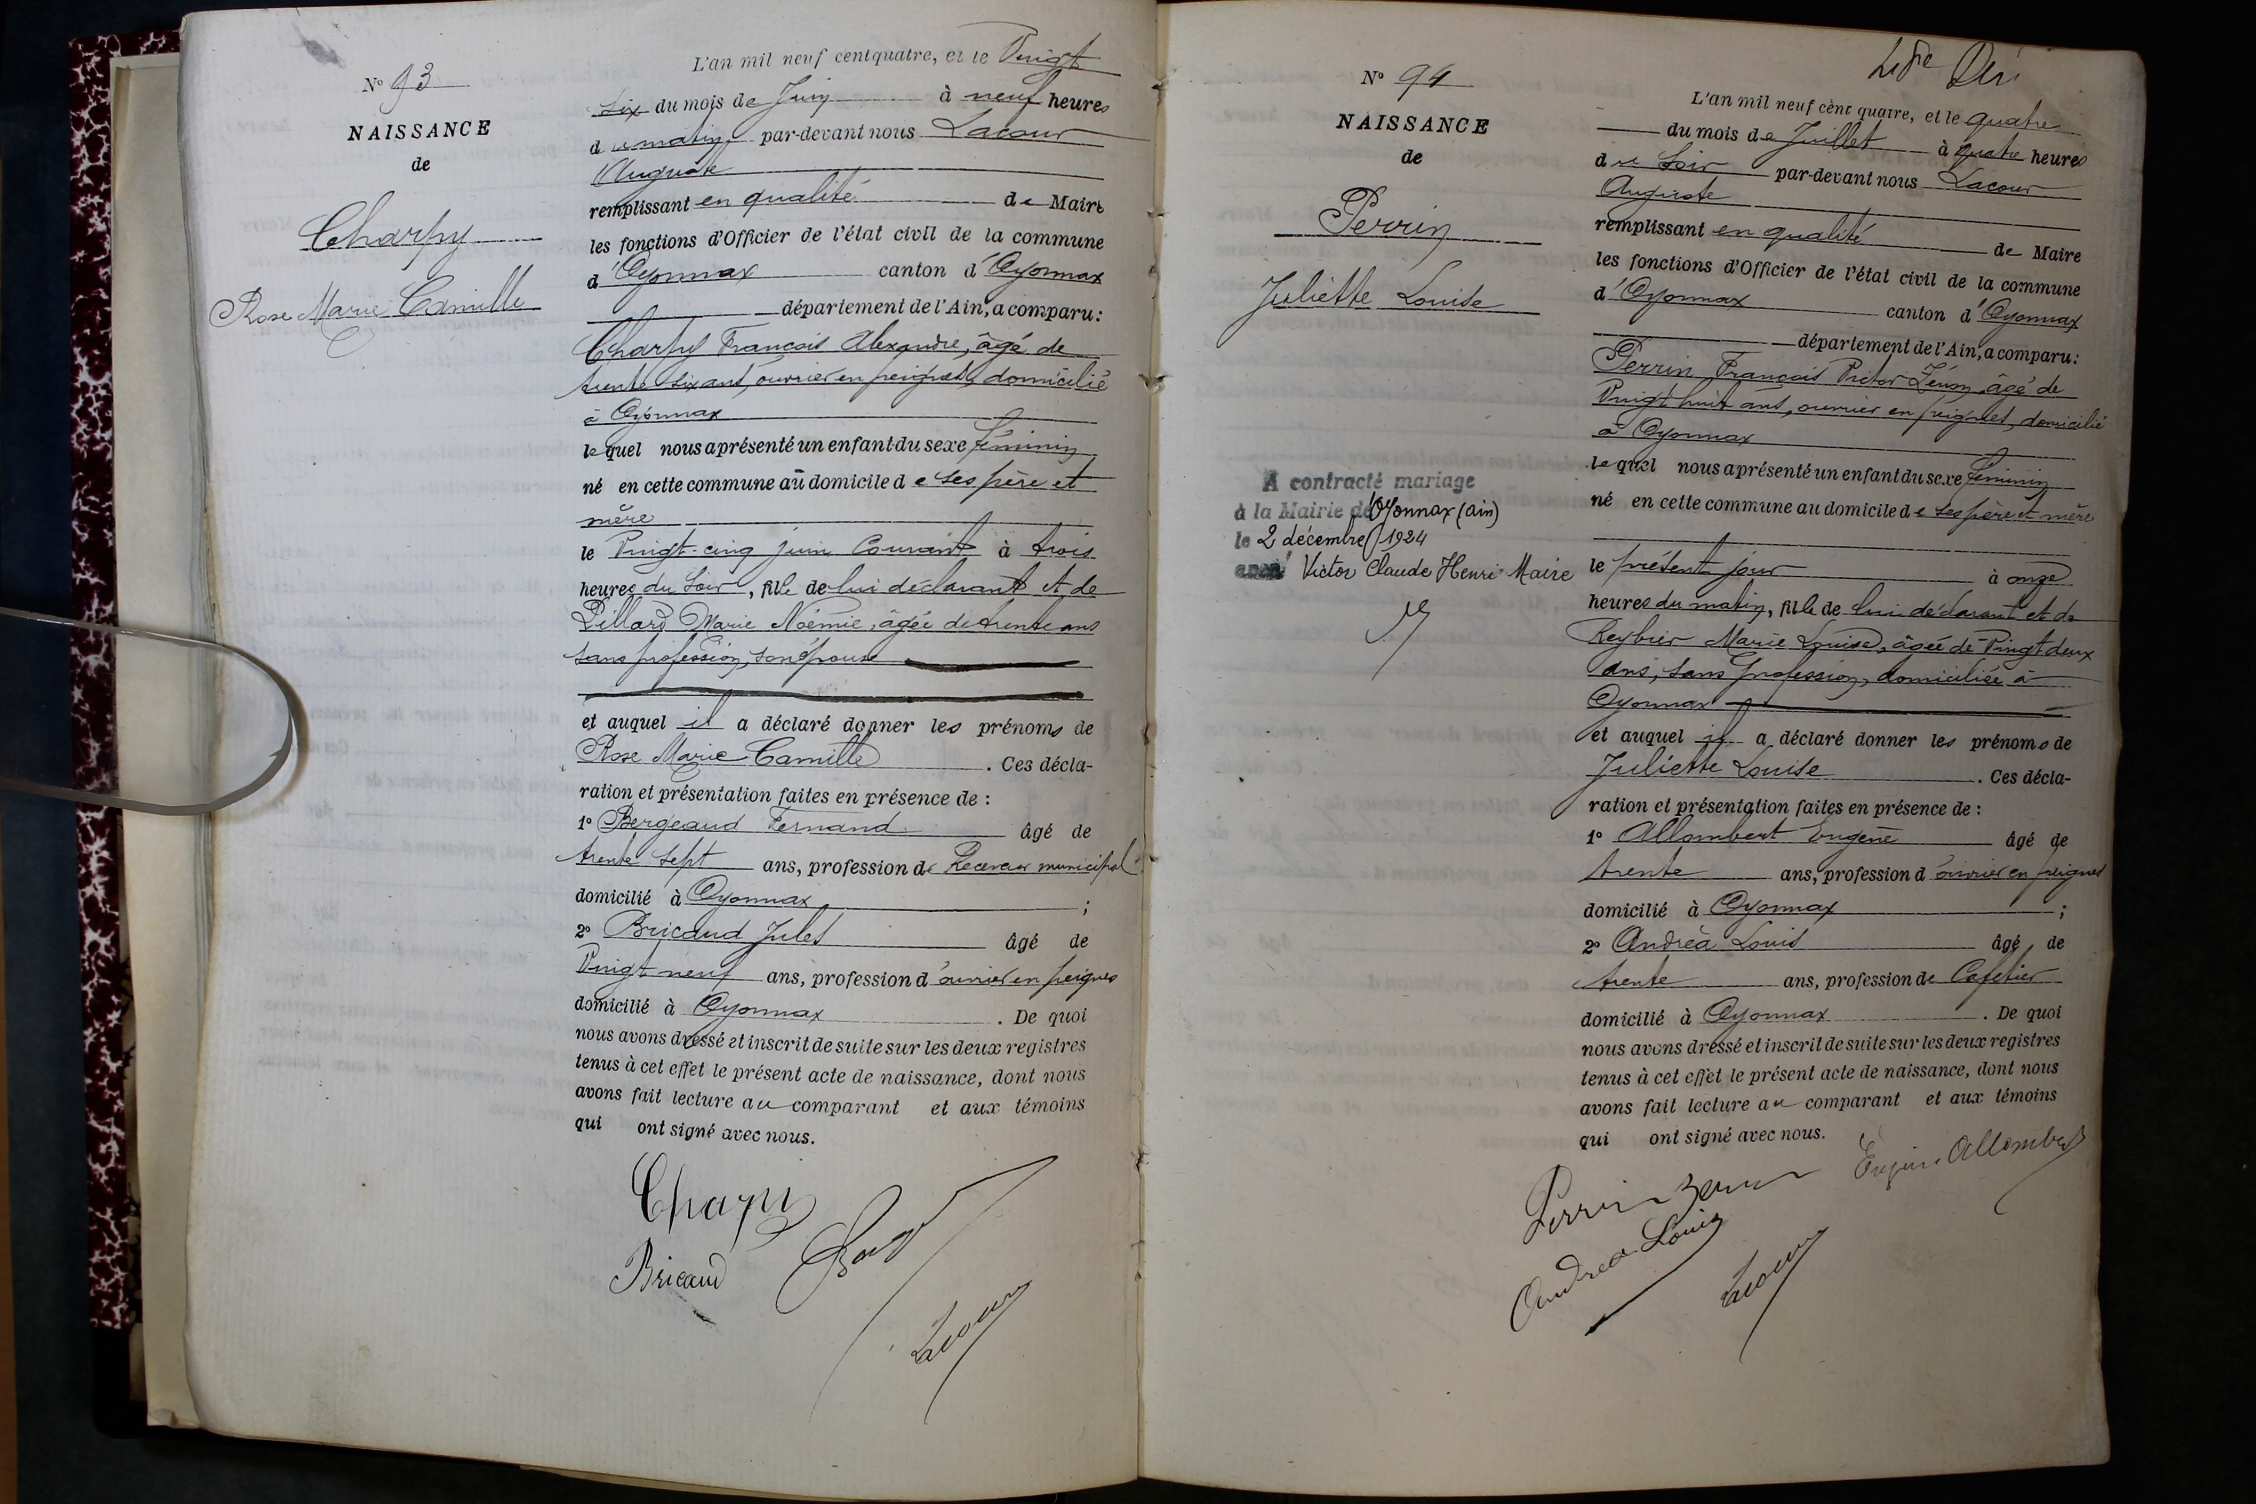 N° 93
NAISSANCE
de
Charpy
Rose Marie Camille
L'an mil neuf cent quatre, et le Vingt
six du mois de Juin à neuf heures
du matin par-devant nous Lacour
Auguste
remplissant en qualité de Maire
les fonctions d'Officier de l'état civil de la commune
d'Oyonnax canton d'Oyonnax
département de l'Ain, a comparu :
Charpy François Alexandre, âgé de
trente six ans, ouvrier en peignes, domicilié
à Oyonnax
lequel nous a présenté un enfant du sexe féminin
né en cette commune au domicile de ses père et
mère
le Vingt-cinq juin Courant à trois
heures du soir, fille de lui déclarant et de
Pillard Marie Noémie, âgée de trente ans
sans profession, son épouse
et auquel il a déclaré donner les prénoms de
Rose Marie Camille. Ces décla-
ration et présentation faites en présence de :
1° Bergeaud Fernand âgé de
trente sept ans, profession de Receveur municipal
domicilié à Oyonnax ;
2° Bricaud Jules âgé de
Vingt neuf ans, profession d'ouvrier en peignes
domicilié à Oyonnax. De quoi
nous avons dressé et inscrit de suite sur les deux registres
tenus à cet effet le présent acte de naissance, dont nous
avons fait lecture au comparant et aux témoins
qui ont signé avec nous.
Charpy
Bricaud
Lacour
N° 94
NAISSANCE
de
Perrin
Juliette Louise
A contracté mariage
à la Mairie d'Oyonnax (ain)
le 2 décembre 1924
avec Victor Claude Henri Maire
L'an mil neuf cent quatre, et le quatre
du mois de Juillet à quatre heures
du Soir par-devant nous Lacour
Auguste
remplissant en qualité de Maire
les fonctions d'Officier de l'état civil de la commune
d'Oyonnax canton d'Oyonnax
département de l'Ain, a comparu :
Perrin François Victor Zénon, âgé de
Vingt huit ans, ouvrier en peignes, domicilié
à Oyonnax
lequel nous a présenté un enfant du sexe féminin
né en cette commune au domicile de ses père et mère
le présent jour à onze
heures du matin, fille de lui déclarant et de
Reybier Marie Louise, âgée de Vingt deux
ans, sans profession, domiciliée à
Oyonnax
et auquel il a déclaré donner les prénoms de
Juliette Louise. Ces décla-
ration et présentation faites en présence de :
1° Allombert Eugène âgé de
trente ans, profession d'ouvrier en peignes
domicilié à Oyonnax ;
2° Andréa Louis âgé de
trente ans, profession de Cafetier
domicilié à Oyonnax. De quoi
nous avons dressé et inscrit de suite sur les deux registres
tenus à cet effet le présent acte de naissance, dont nous
avons fait lecture au comparant et aux témoins
qui ont signé avec nous.
Eugène Allombert
Perrin Zénon
Andréa Louis
Lacour